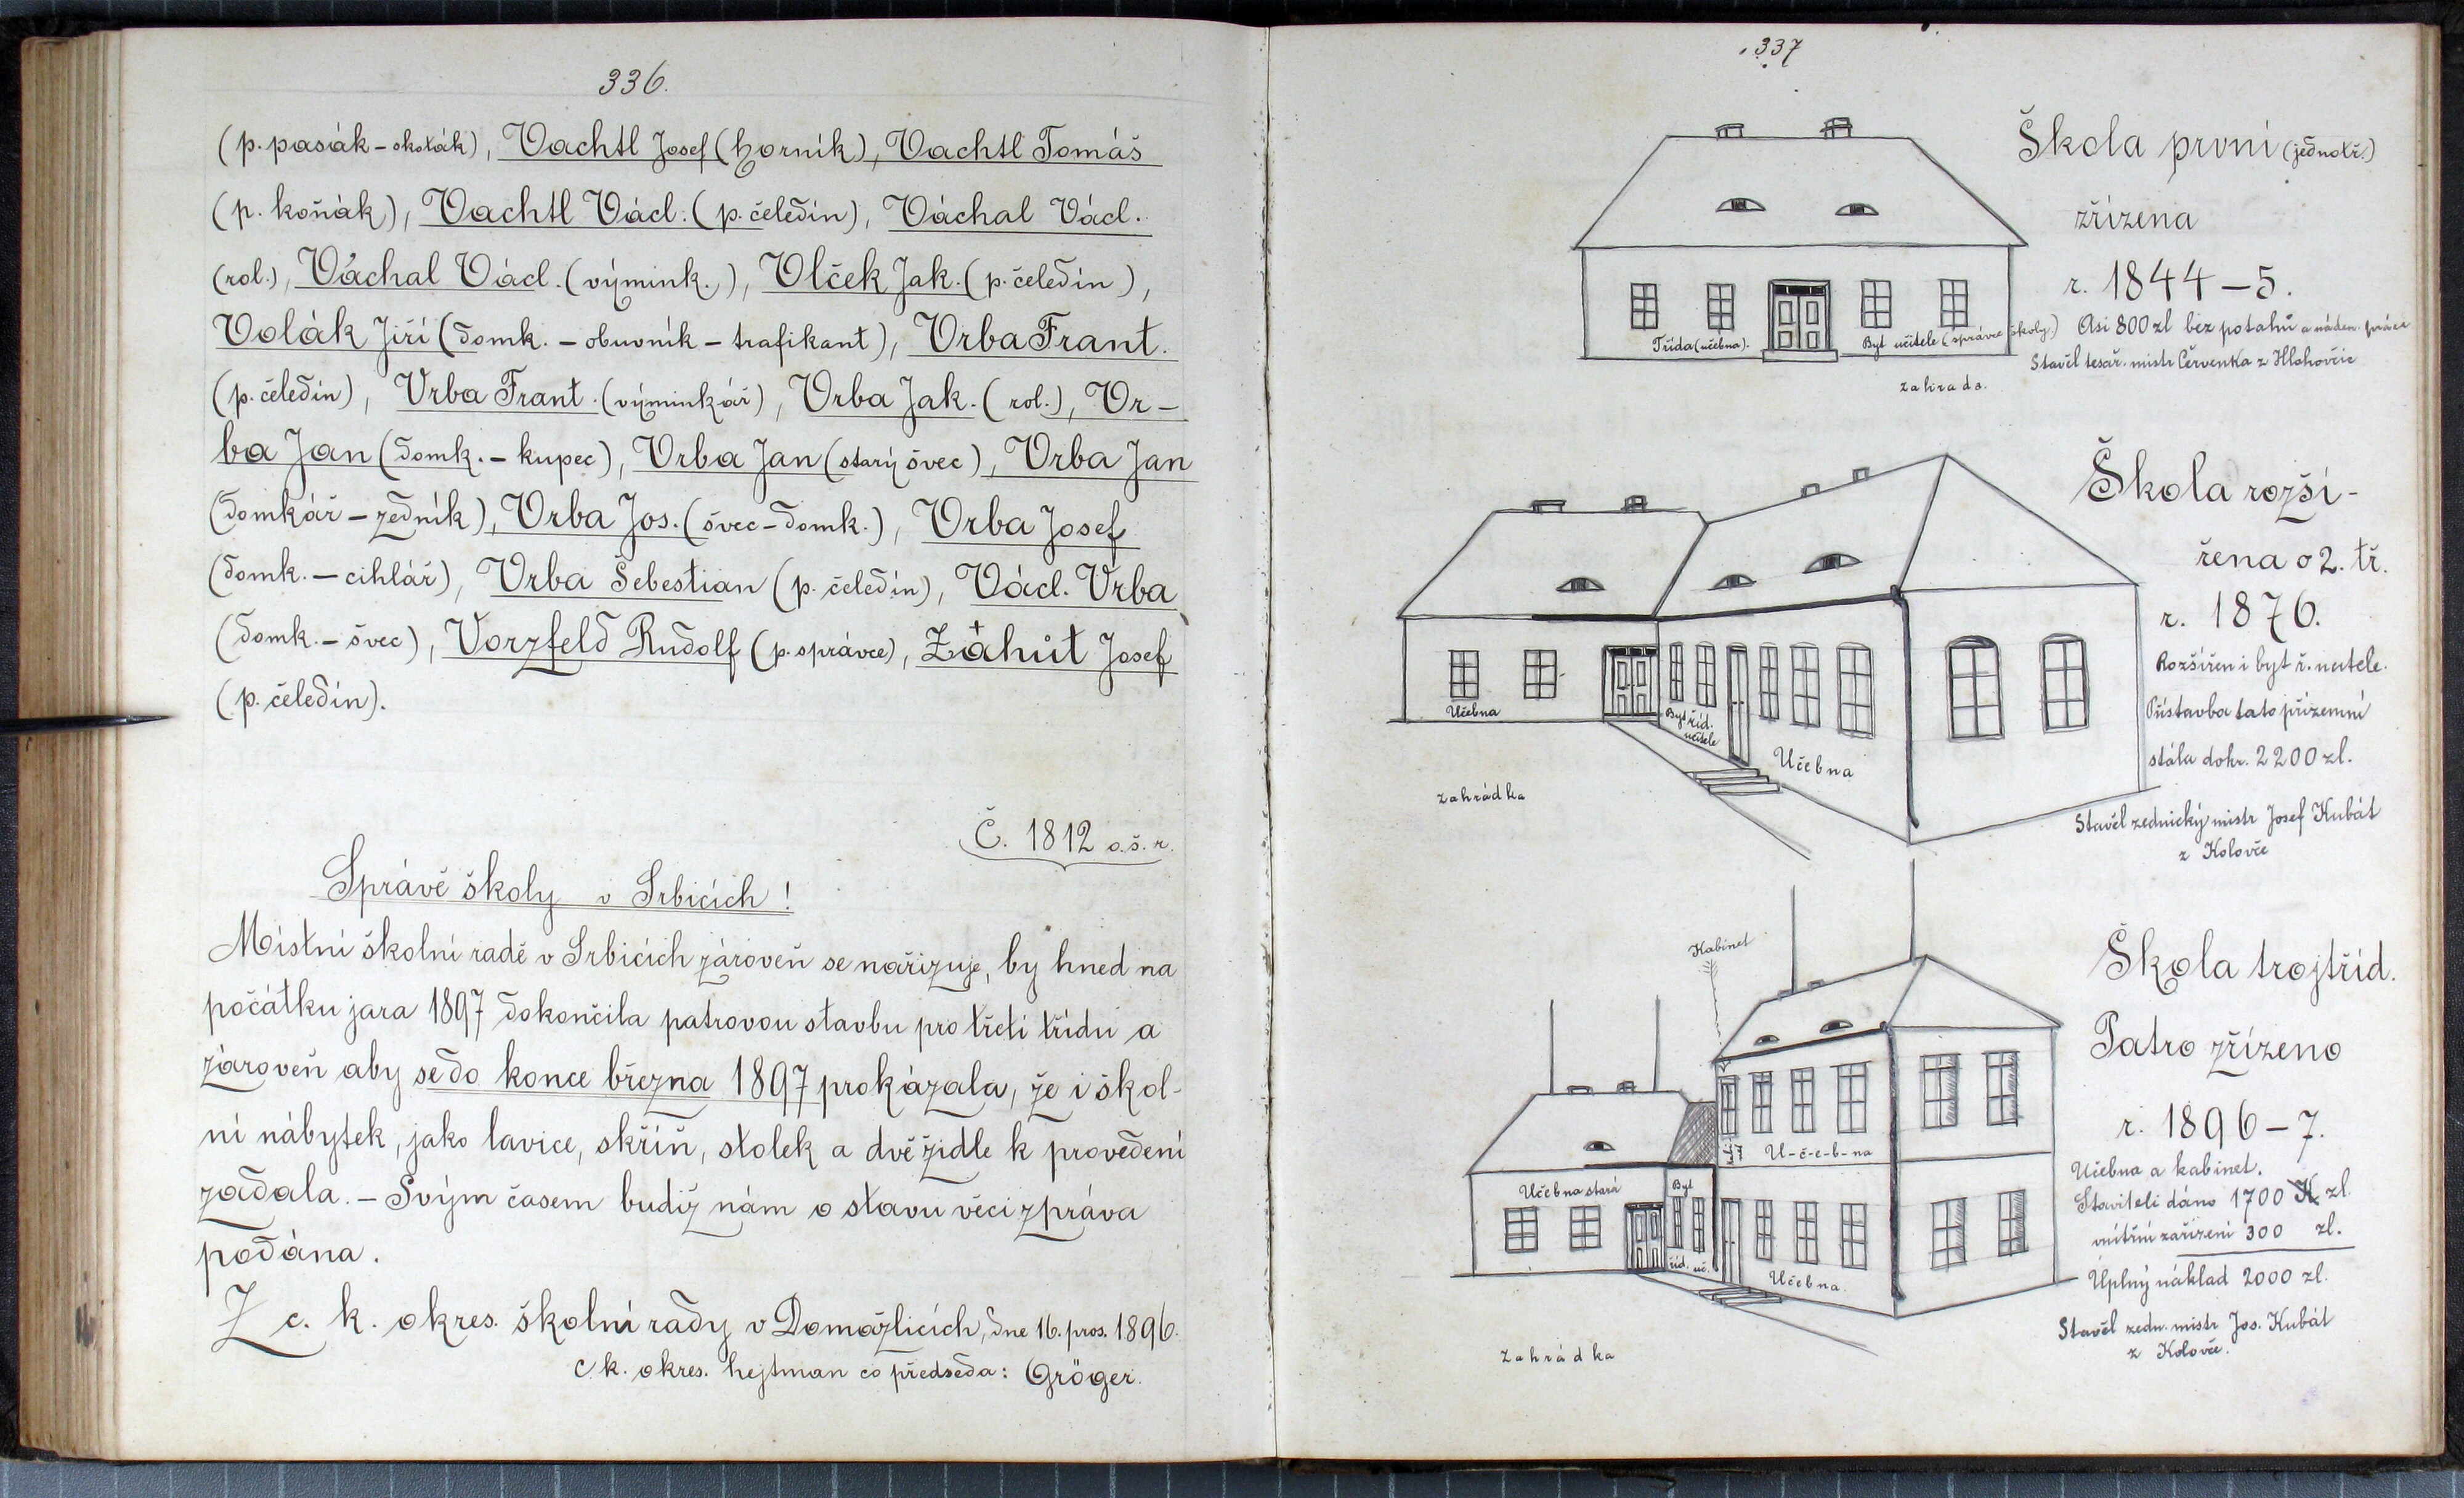 336.
(p. pasák – skoták), Vachtl Josef (horník), Vachtl Tomáš
(p. koňák), Vachtl Václ. (p. čeledín), Váchal Václ.
(rol.), Váchal Václ. (výmink.), Vlček Jak. (p. čeledín),
Volák Jiří (domk. – obuvník – trafikant), Vrba Frant.
(p. čeledín), Vrba Frant. (výminkář), Vrba Jak. (rol.), Vr–
ba Jan (domk. – kupec), Vrba Jan (starý švec), Vrba Jan
(domkář – zedník), Vrba Jos. (švec – domk.), Vrba Josef
(domk. – cihlář), Vrba Šebestian (p. čeledín), Václ. Vrba
(domk. – švec), Vorzfeld Rudolf (p. správce), Záhůt Josef
(p. čeledín).
Č. 1812 o.š.r.
Správě školy v Srbicích!
Místní školní radě v Srbicích zároveň se nařizuje, by hned na
počátku jara 1897 dokončila patrovou stavbu pro třetí třídu a
zároveň aby se do konce března 1897 prokázala, že i škol-
ní nábytek, jako lavice, skříň, stolek a dvě židle k provedení
zadala. – Svým časem budiž nám o stavu věci zpráva
podána.
Z c. k. okres. školní rady v Domažlicích, dne 16. pros. 1896.
C. k. okres. hejtman co předseda: Gröger.
337
Škola první (jednotř.)
zřízena
r. 1844–5.
Asi 800 zl bez potahů a náden. práce
Stavěl tesař. mistr Červenka z Hlohovčic
Třída (učebna).
Byt učitele (správce školy.)
zahrada.
Škola rozší-
řena o 2. tř.
r. 1876.
Rozšířen i byt ř. učitele.
Přístavba tato přízemní
stála dohr. 2200 zl.
Stavěl zednický mistr Josef Kubát
z Kolovče
Učebna
Byt říd.
učitele
Učebna
zahrádka
Škola trojtříd.
Patro zřízeno
r. 1896–7.
Učebna a kabinet.
Staviteli dáno 1700 K zl.
vnitřní zařízení 300 zl.
Úplný náklad 2000 zl.
Stavěl zedn. mistr Jos. Kubát
z Kolovče.
Kabinet
U-č-e-b-na
Učebna stará
Byt
říd. uč.
Učebna.
Zahrádka